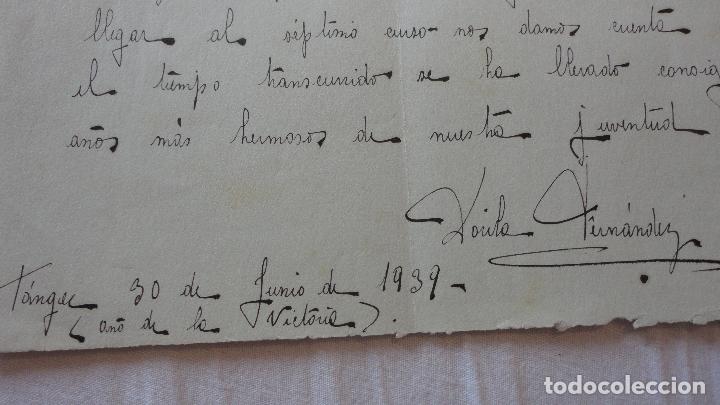 llegar al séptimo curso nos damos cuenta
el tiempo transcurrido se ha llevado consig
años más hermosos de nuestra juventud
Fernández
Tánger 30 de Junio de 1939-
(año de la Victoria).
todocoleccion.net